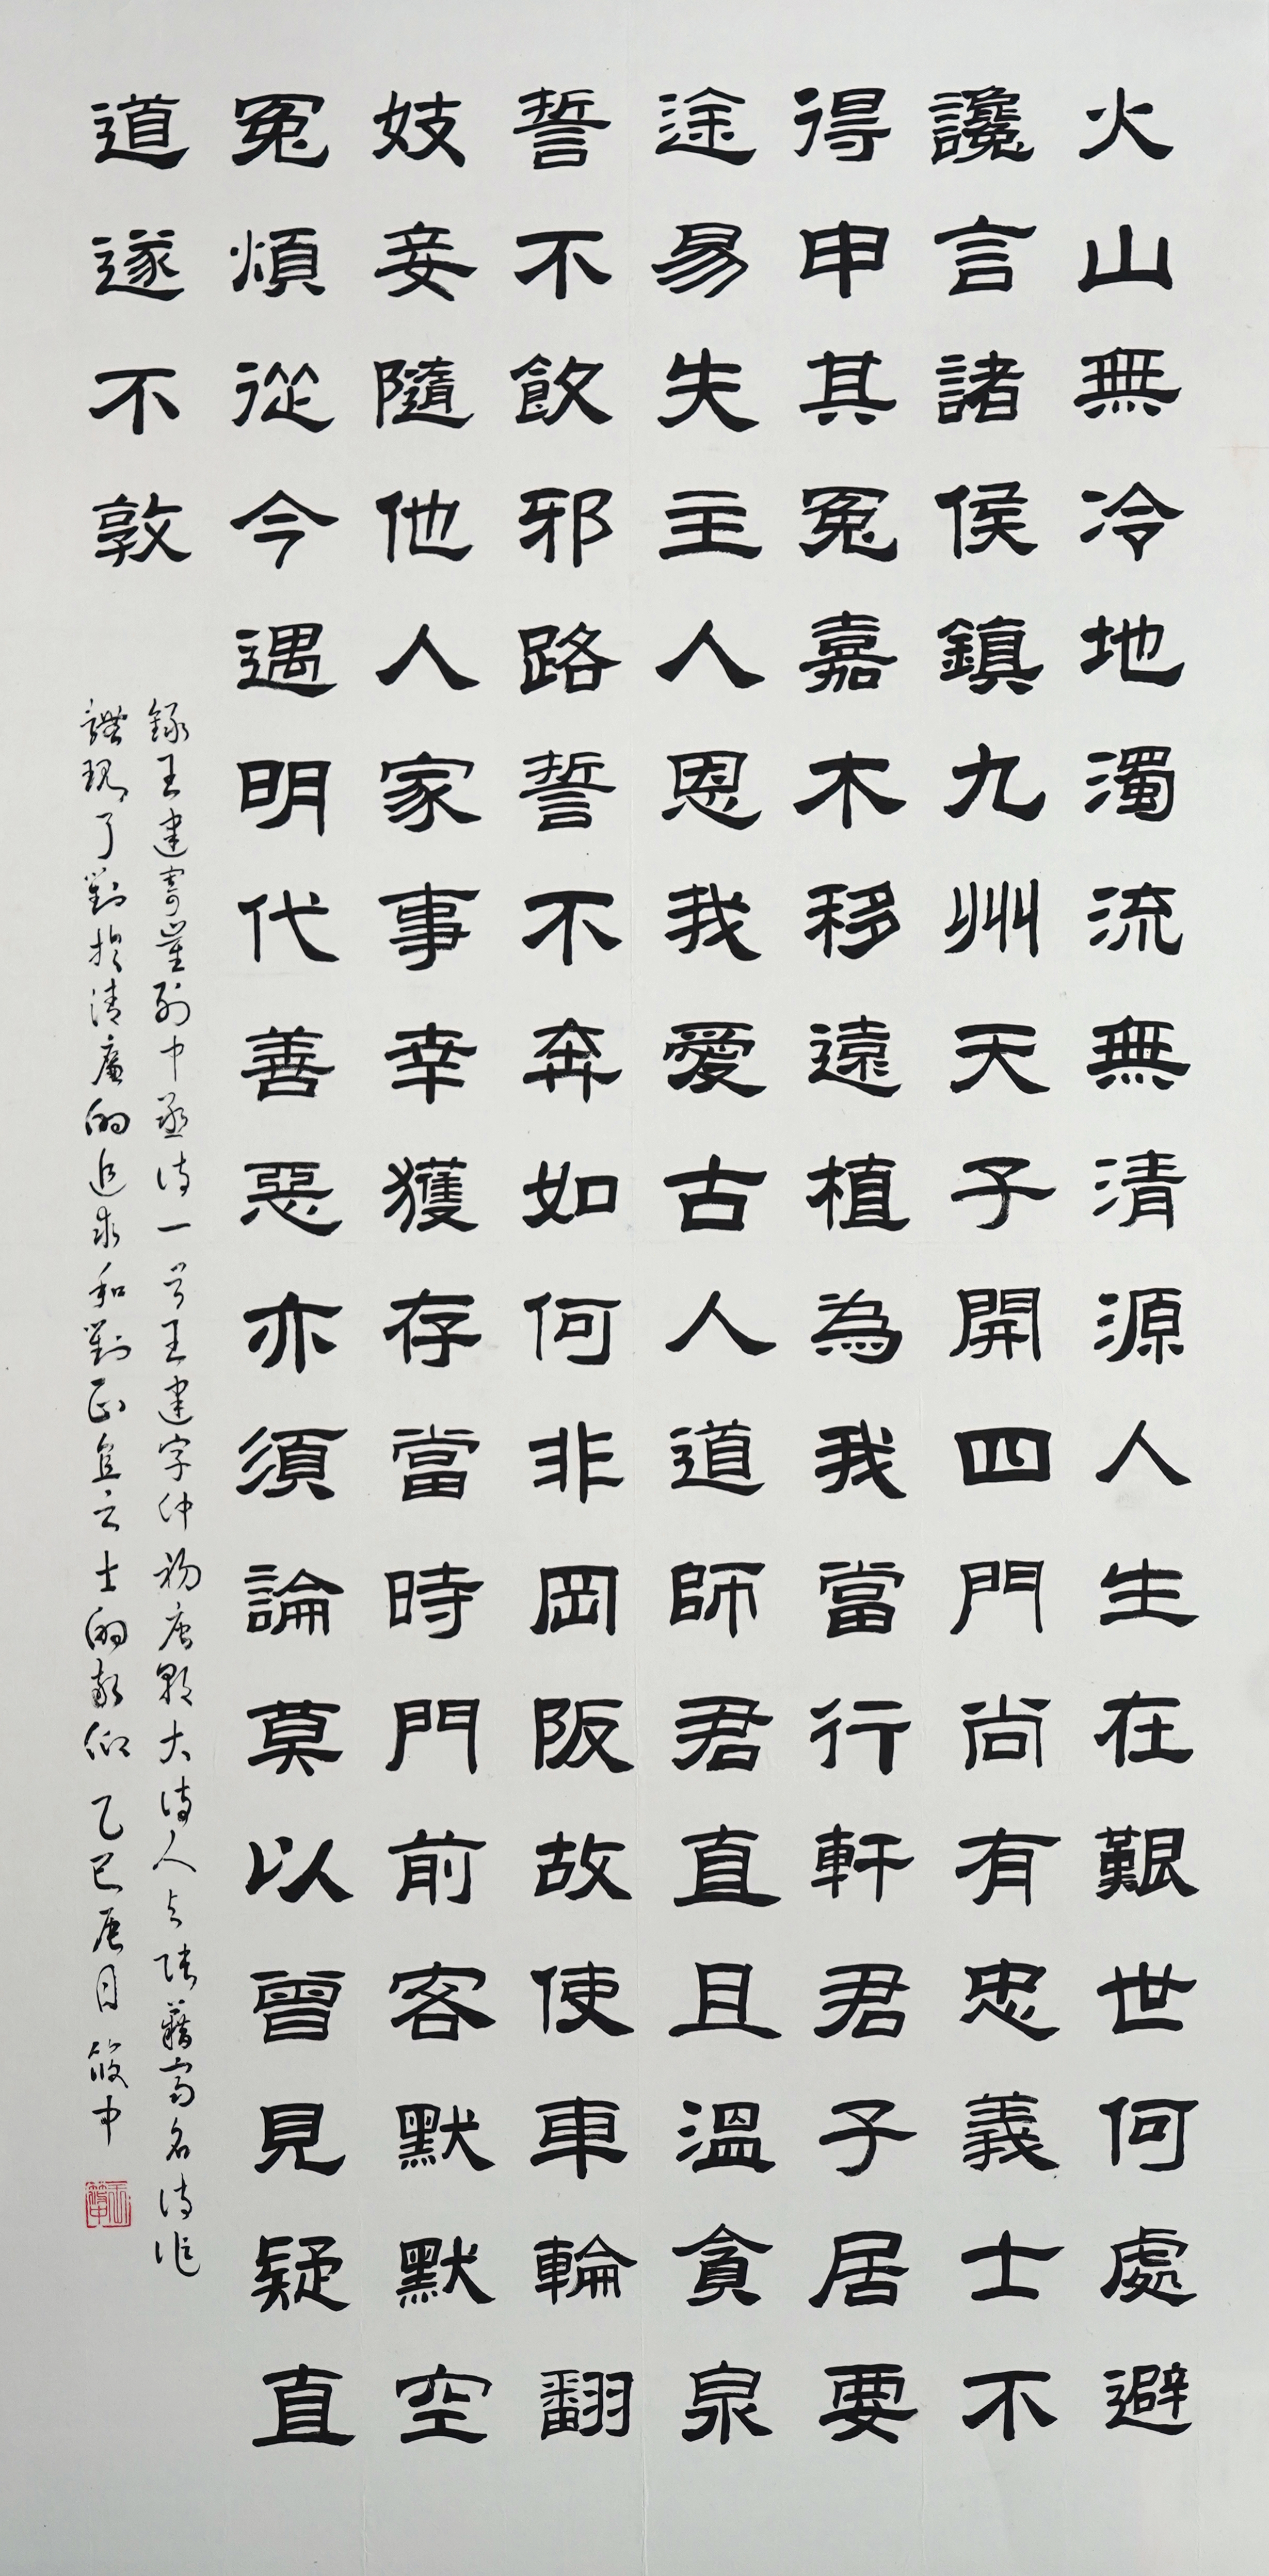 火山無冷地濁流無清源人生在艱世何處避
讒言諸侯鎮九州天子開四門尚有忠義士不
得申其冤嘉木移遠植為我當行軒君子居要
途易失主人恩我愛古人道師君直且溫貪泉
誓不飲邪路誓不奔如何非岡阪故使車輪翻
妓妾隨他人家事幸獲存當時門前客默默空
冤煩從今遇明代善惡亦須論莫以曾見疑直
道遂不敦
錄王建寄崔列中丞詩一首王建字仲初唐朝大詩人與張籍齊名詩作
體現了對於清廉的追求和對正直之士的敬仰乙巳唐月筱中